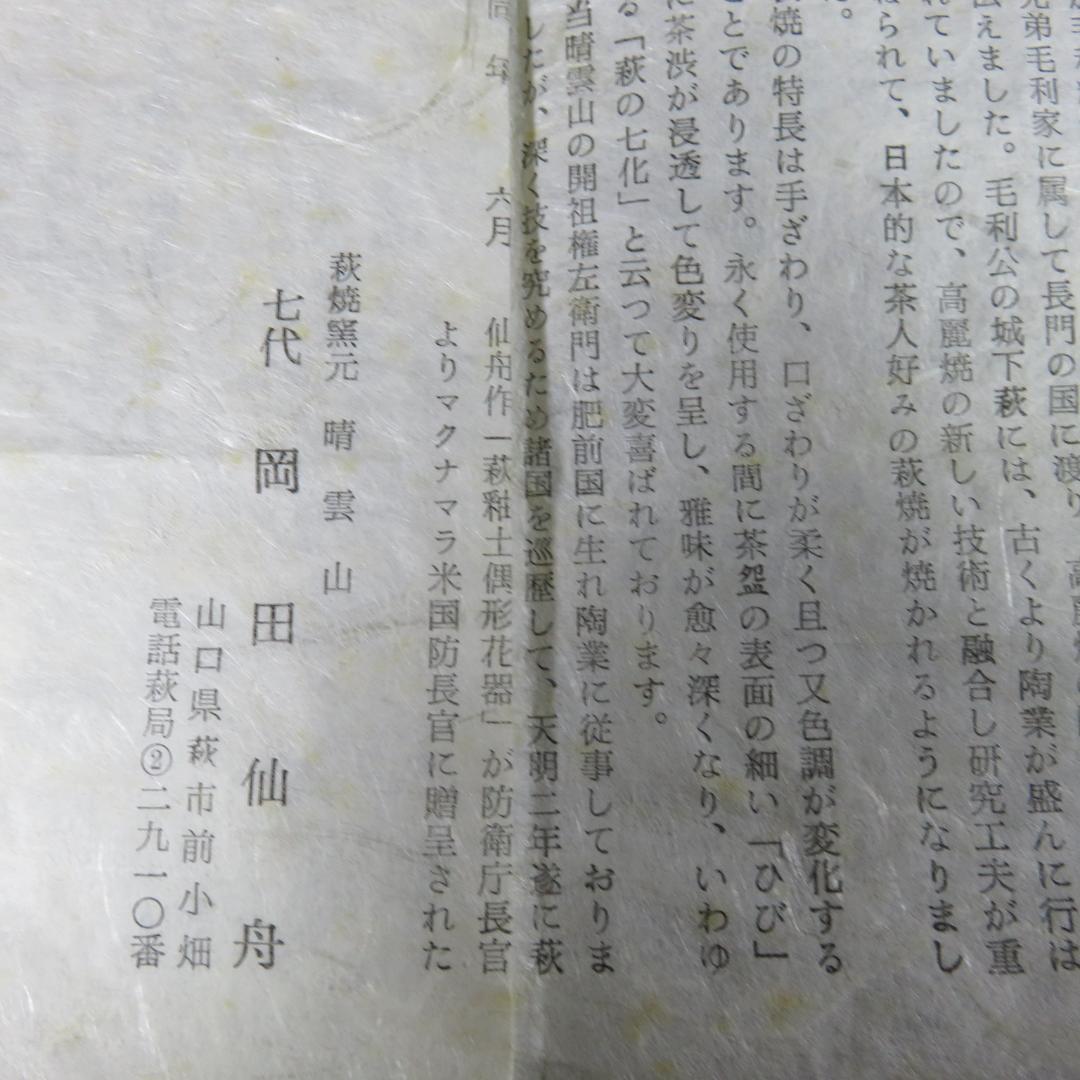 兄弟毛利家に属して長門の国に渡り、高麗焼
伝えました。毛利公の城下萩には、古くより陶業が盛んに行は
れていましたので、高麗焼の新しい技術と融合し研究工夫が重
ねられて、日本的な茶人好みの萩焼が焼かれるようになりまし
た。
焼の特長は手ざわり、口ざわりが柔く且つ又色調が変化する
ことであります。永く使用する間に茶盌の表面の細い「ひび」
に茶渋が浸透して色変りを呈し、雅味が愈々深くなり、いわゆ
る「萩の七化」と云つて大変喜ばれております。
当晴雲山の開祖権左衛門は肥前国に生れ陶業に従事しておりま
したが、深く技を究めるため諸国を巡歴して、天明二年遂に萩
同年 六月 仙舟作「萩釉土偶形花器」が防衛庁長官
よりマクナマラ米国防長官に贈呈された
萩焼窯元 晴雲山
七代 岡田仙舟
山口県萩市前小畑
電話萩局②二九一〇番